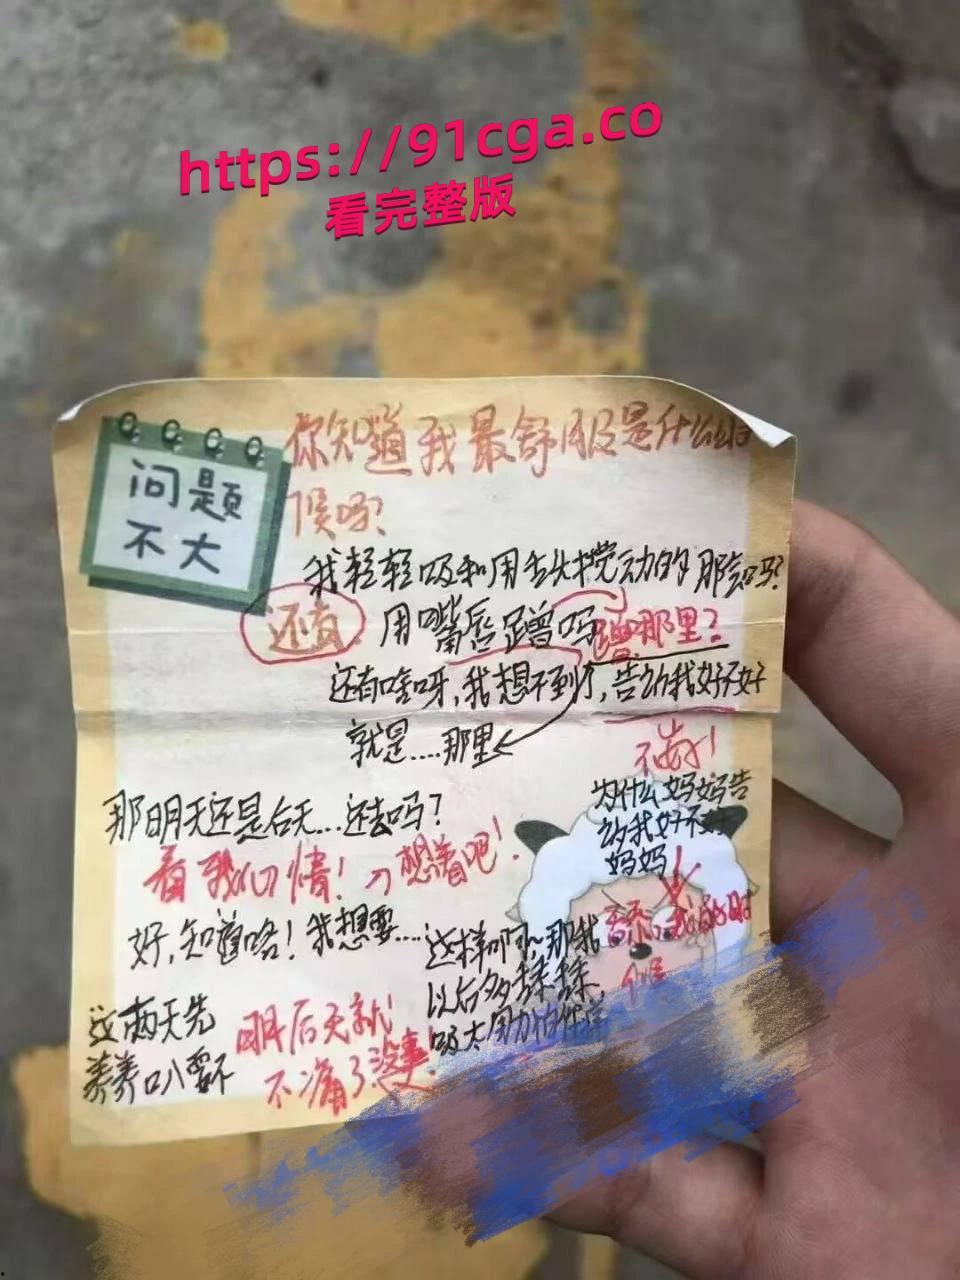 https://91cga.co
看完整版
问题
不大
你知道我最舒服是什么时
候吗?
我轻轻吸和用舌头搅动的那会吗?
还有 用嘴唇蹭吗 蹭那里?
还有啥呀,我想不到了,告诉我好不好
就是....那里
不告!
为什么妈妈告
诉我好不好
妈妈
那明天还是后天...还去吗?
看我心情! 想着吧!
好,知道咯!我想要....
这样啊 那我
以后多揉揉,
这两天先
养养
明后天就
不痛了没事!